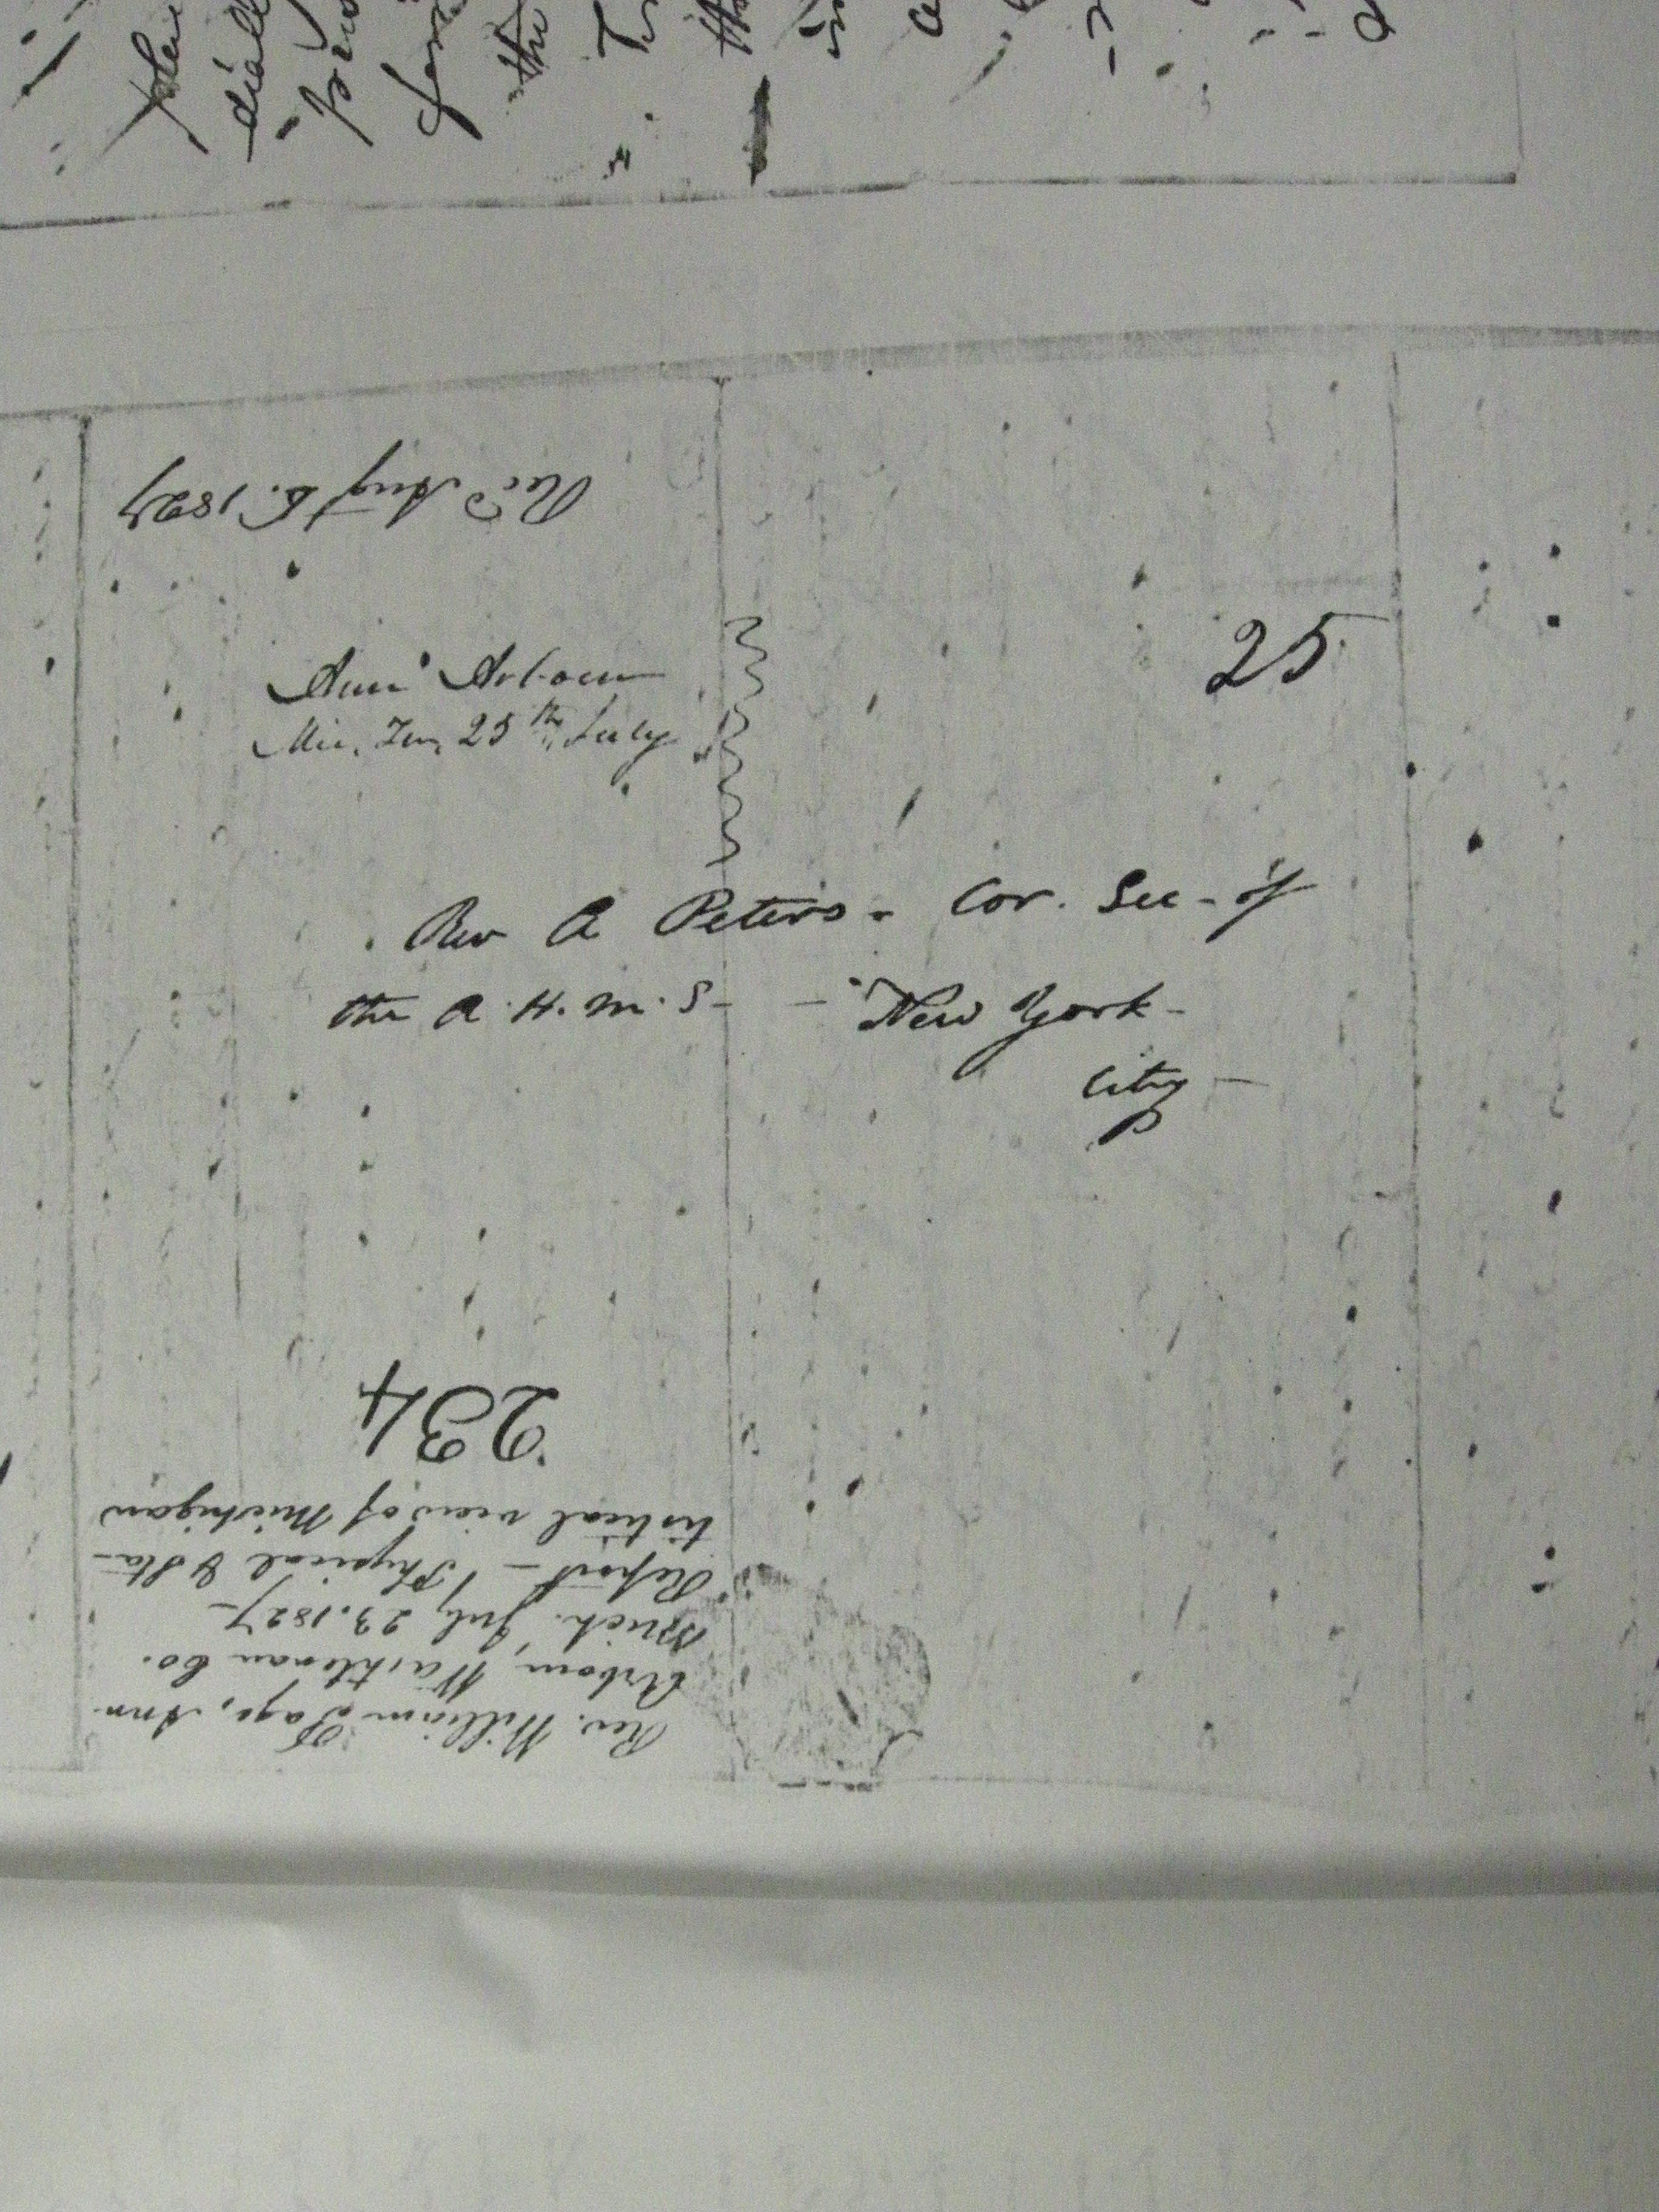 Rec'd Aug 6. 1827
Ann Arbour
Mic. Ter. 25th July
25
Rev A Peters - Cor. Sec - of
the A. H. M. S - - New York -
City -
234
Rev. William Page, Ann
Arbour, Washtenau Co.
Mich. July 23. 1827 -
Report - Physical & Sta-
tistical view of Michigan